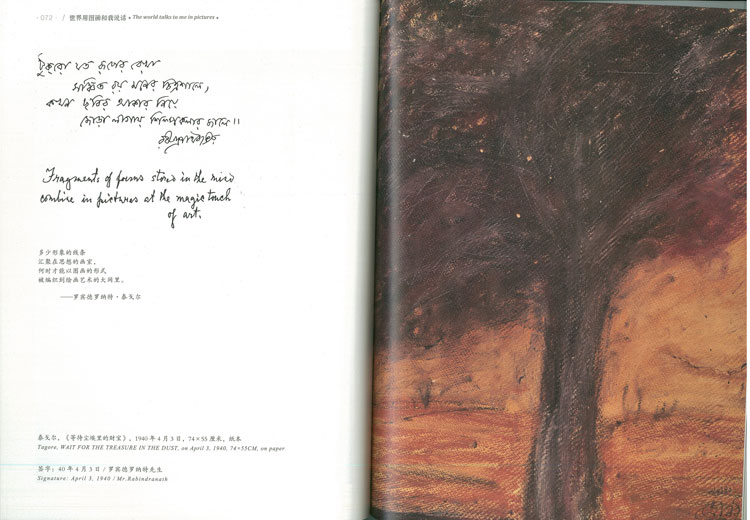 ·072· / 世界用图画和我说话 • The world talks to me in pictures •
টুকরো যত রূপের রেখা
সঞ্চিত রয় মনের চিত্রশালে,
কখন ছবির আকার নিয়ে
জোড়া লাগায় শিল্পকলার জালে॥
Fragments of forms stored in the mind
combine in pictures at the magic touch
of art.
多少形象的线条
汇聚在思想的画室，
何时才能以图画的形式
被编织到绘画艺术的大网里。
——罗宾德罗纳特·泰戈尔
泰戈尔，《等待尘埃里的财宝》，1940 年 4 月 3 日，74×55 厘米，纸本
Tagore, WAIT FOR THE TREASURE IN THE DUST, on April 3, 1940, 74×55CM, on paper
签字：40 年 4 月 3 日 / 罗宾德罗纳特先生
Signature: April 3, 1940 / Mr.Rabindranath